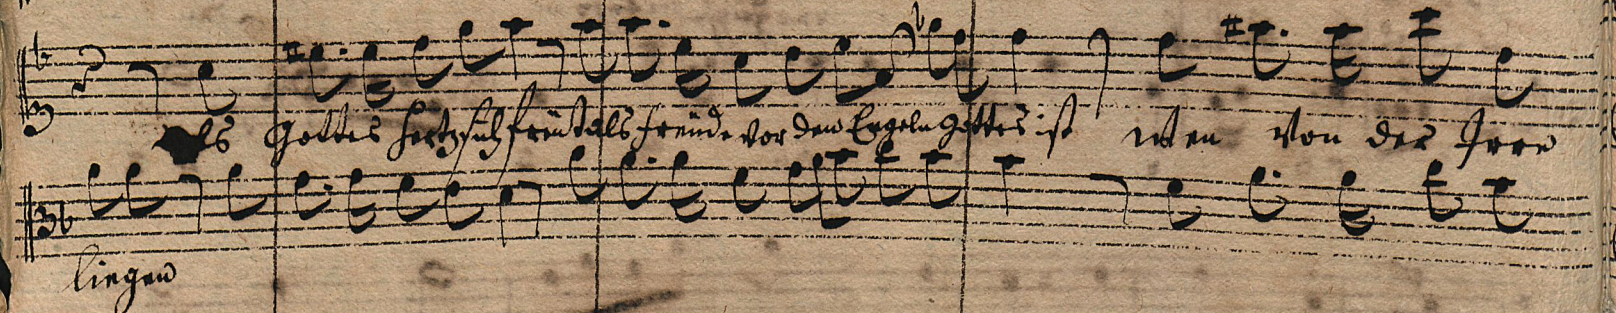 als Gottes Hertz sich freut als Freude vor den Engeln Gottes ist wen von der Irre
liegen